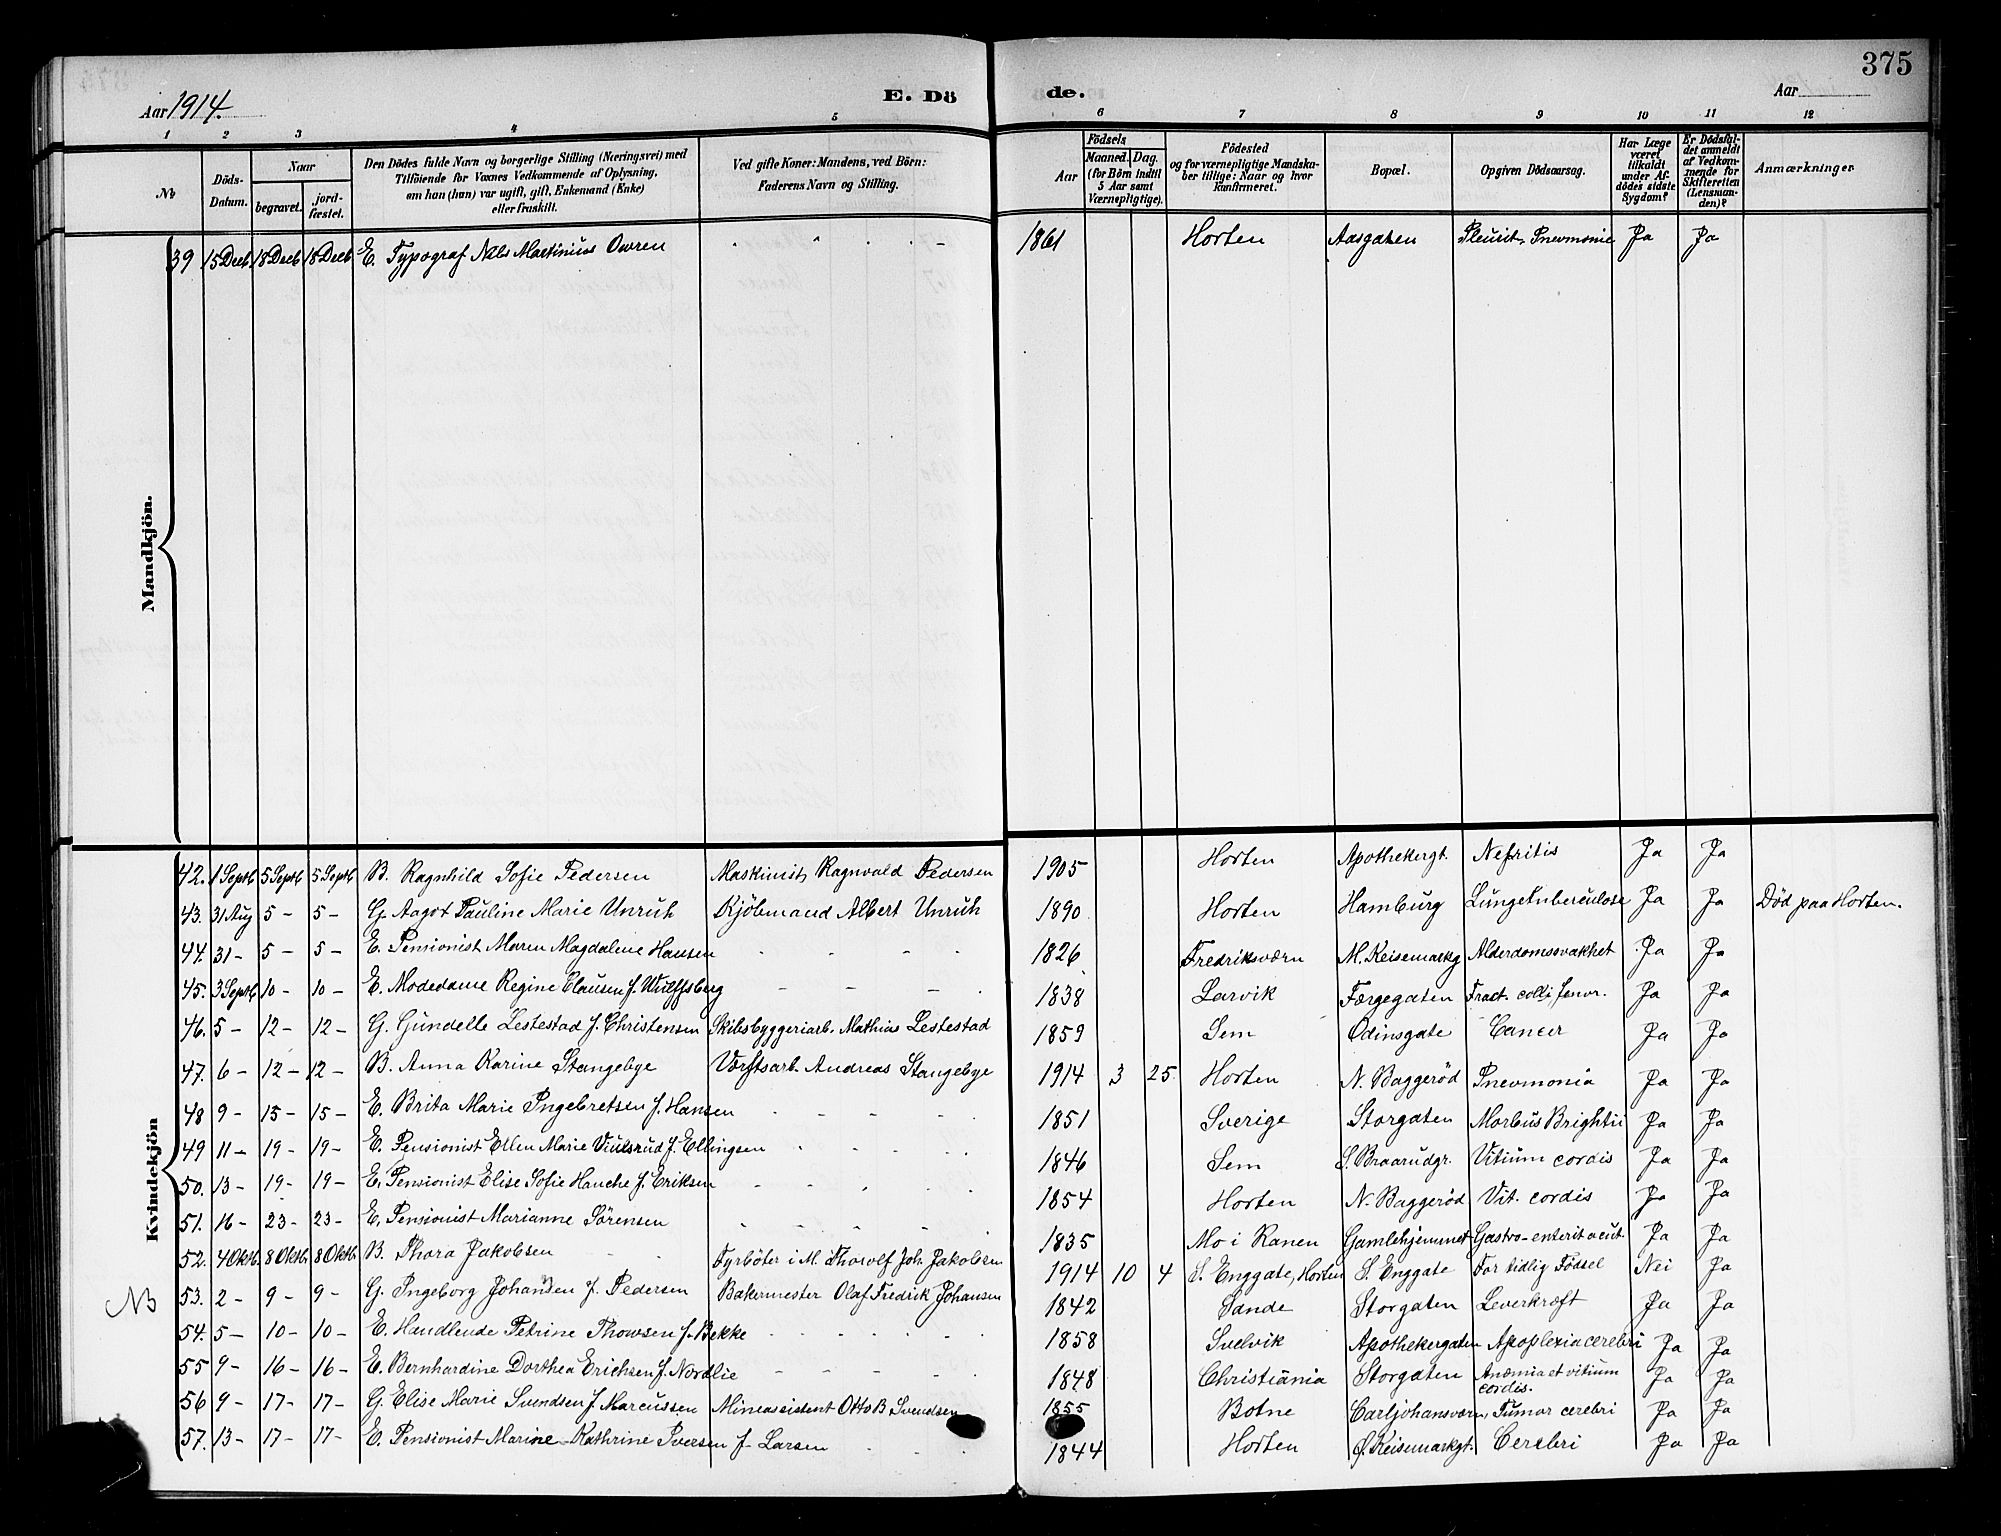 375
Aar 1914. E. Dö de. Aar
1 2 3 4 5 6 7 8 9 10 11 12
No
Döds-Datum.
Naar begravet. jord-fæstet.
Den Dödes fulde Navn og borgerlige Stilling (Næringsvei) med Tilföiende for Voxnes Vedkommende af Oplysning, om han (hun) var ugift, gift, Enkemand (Enke) eller fraskilt.
Ved gifte Koner: Mandens, ved Börn: Faderens Navn og Stilling.
Födsels Aar Maaned. Dag. (for Börn indtil 5 Aar samt Værnepligtige).
Födested og for værnepligtige Mandskaber tillige: Naar og hvor konfirmeret.
Bopæl.
Opgiven Dödsaarsag.
Har Læge været tilkaldt under Afdödes sidste Sygdom?
Er Dödsfaldet anmeldt af Vedkommende for Skifteretten (Lensmanden)?
Anmærkninger
Mandkjön.
39 15 Decb. 18 Decb 18 Decb E. Typograf Nils Martinius Owren 1861 Horten Aasgaten Pleurit. Pnevmonie Ja Ja
Kvindekjön
42. 1 Septb 5 Septb 5 Septb B. Ragnhild Sofie Pedersen Maskinist Ragnvald Pedersen 1905 Horten Apothekergt. Nefritis Ja Ja
43. 31 Aug 5 - 5 - G. Aagot Pauline Marie Unruh Kjöbmand Albert Unruh 1890 Horten Hamburg Lungetuberculose Ja Ja Död paa Horten.
44. 31 - 5 - 5 - E. Pensionist Maren Magdalene Hansen 1826 Fredriksværn M. Keisemarkg Alderdomssvakhet Ja Ja
45. 3 Septb 10 - 10 - E. Modedame Regine Clausen f. Wulffsberg 1838 Larvik Færgegaten Fract. colli femor. Ja Ja
46. 5 - 12 - 12 - G. Gundelle Lestestad f. Christensen Skibsbyggeriarb. Mathias Lestestad 1859 Sem Odinsgate Cancer Ja Ja
47. 6 - 12 - 12 - B. Anna Karine Stangebye Værftsarb. Andreas Stangebye 1914 3 25 Horten N. Baggeröd Pnevmonia Ja Ja
48 9 - 15 - 15 - E. Brita Marie Ingebretsen f. Hansen 1851 Sverige Storgaten Morbus Brightii Ja Ja
49 11 - 19 - 19 - E. Pensionist Ellen Marie f. Ellingsen 1846 Sem S. Braarudgr. Vitium cordis Ja Ja
50. 13 - 19 - 19 - E. Pensionist Elise Sofie Hauche f. Eriksen 1854 Horten N. Baggeröd Vit. cordis Ja Ja
51. 16 - 23 - 23 - E. Pensionist Marianne Sörensen 1835 Mo i Ranen Gamlehjemmet Gastro-enterit acut. Ja Ja
52. 4 Oktb. 8 Oktb. 8 Oktb. B. Thora Jakobsen Fyrböter i M. Thorolf Joh. Jakobsen 1914 10 4 S. Enggate, Horten S. Enggate For tidlig Födsel Nei Ja
NB 53. 2 - 9 - 9 - G. Ingeborg Johansen f. Pedersen Bakermester Olaf Fredrik Johansen 1842 Sande Storgaten Leverkræft Ja Ja
54. 5 - 10 - 10 - E. Handlende Petrine Thowsen f. Bekke 1858 Svelvik Apothekergaten Apoplexia cerebri Ja Ja
55 9 - 16 - 16 - E. Bernhardine Dorthea Erichsen f. Nordlie 1848 Christiania Storgaten Anæmia et vitium cordis. Ja Ja
56 9 - 17 - 17 - G. Elise Marie Svendsen f. Marcussen Mineassistent Otto B. Svendsen 1855 Botne Carljohansværn Tumor cerebri Ja Ja
57. 13 - 17 - 17 - E. Pensionist Marine Kathrine Iversen f. Larsen 1844 Horten Ø. Keisemarkgt. Cerebri Ja Ja